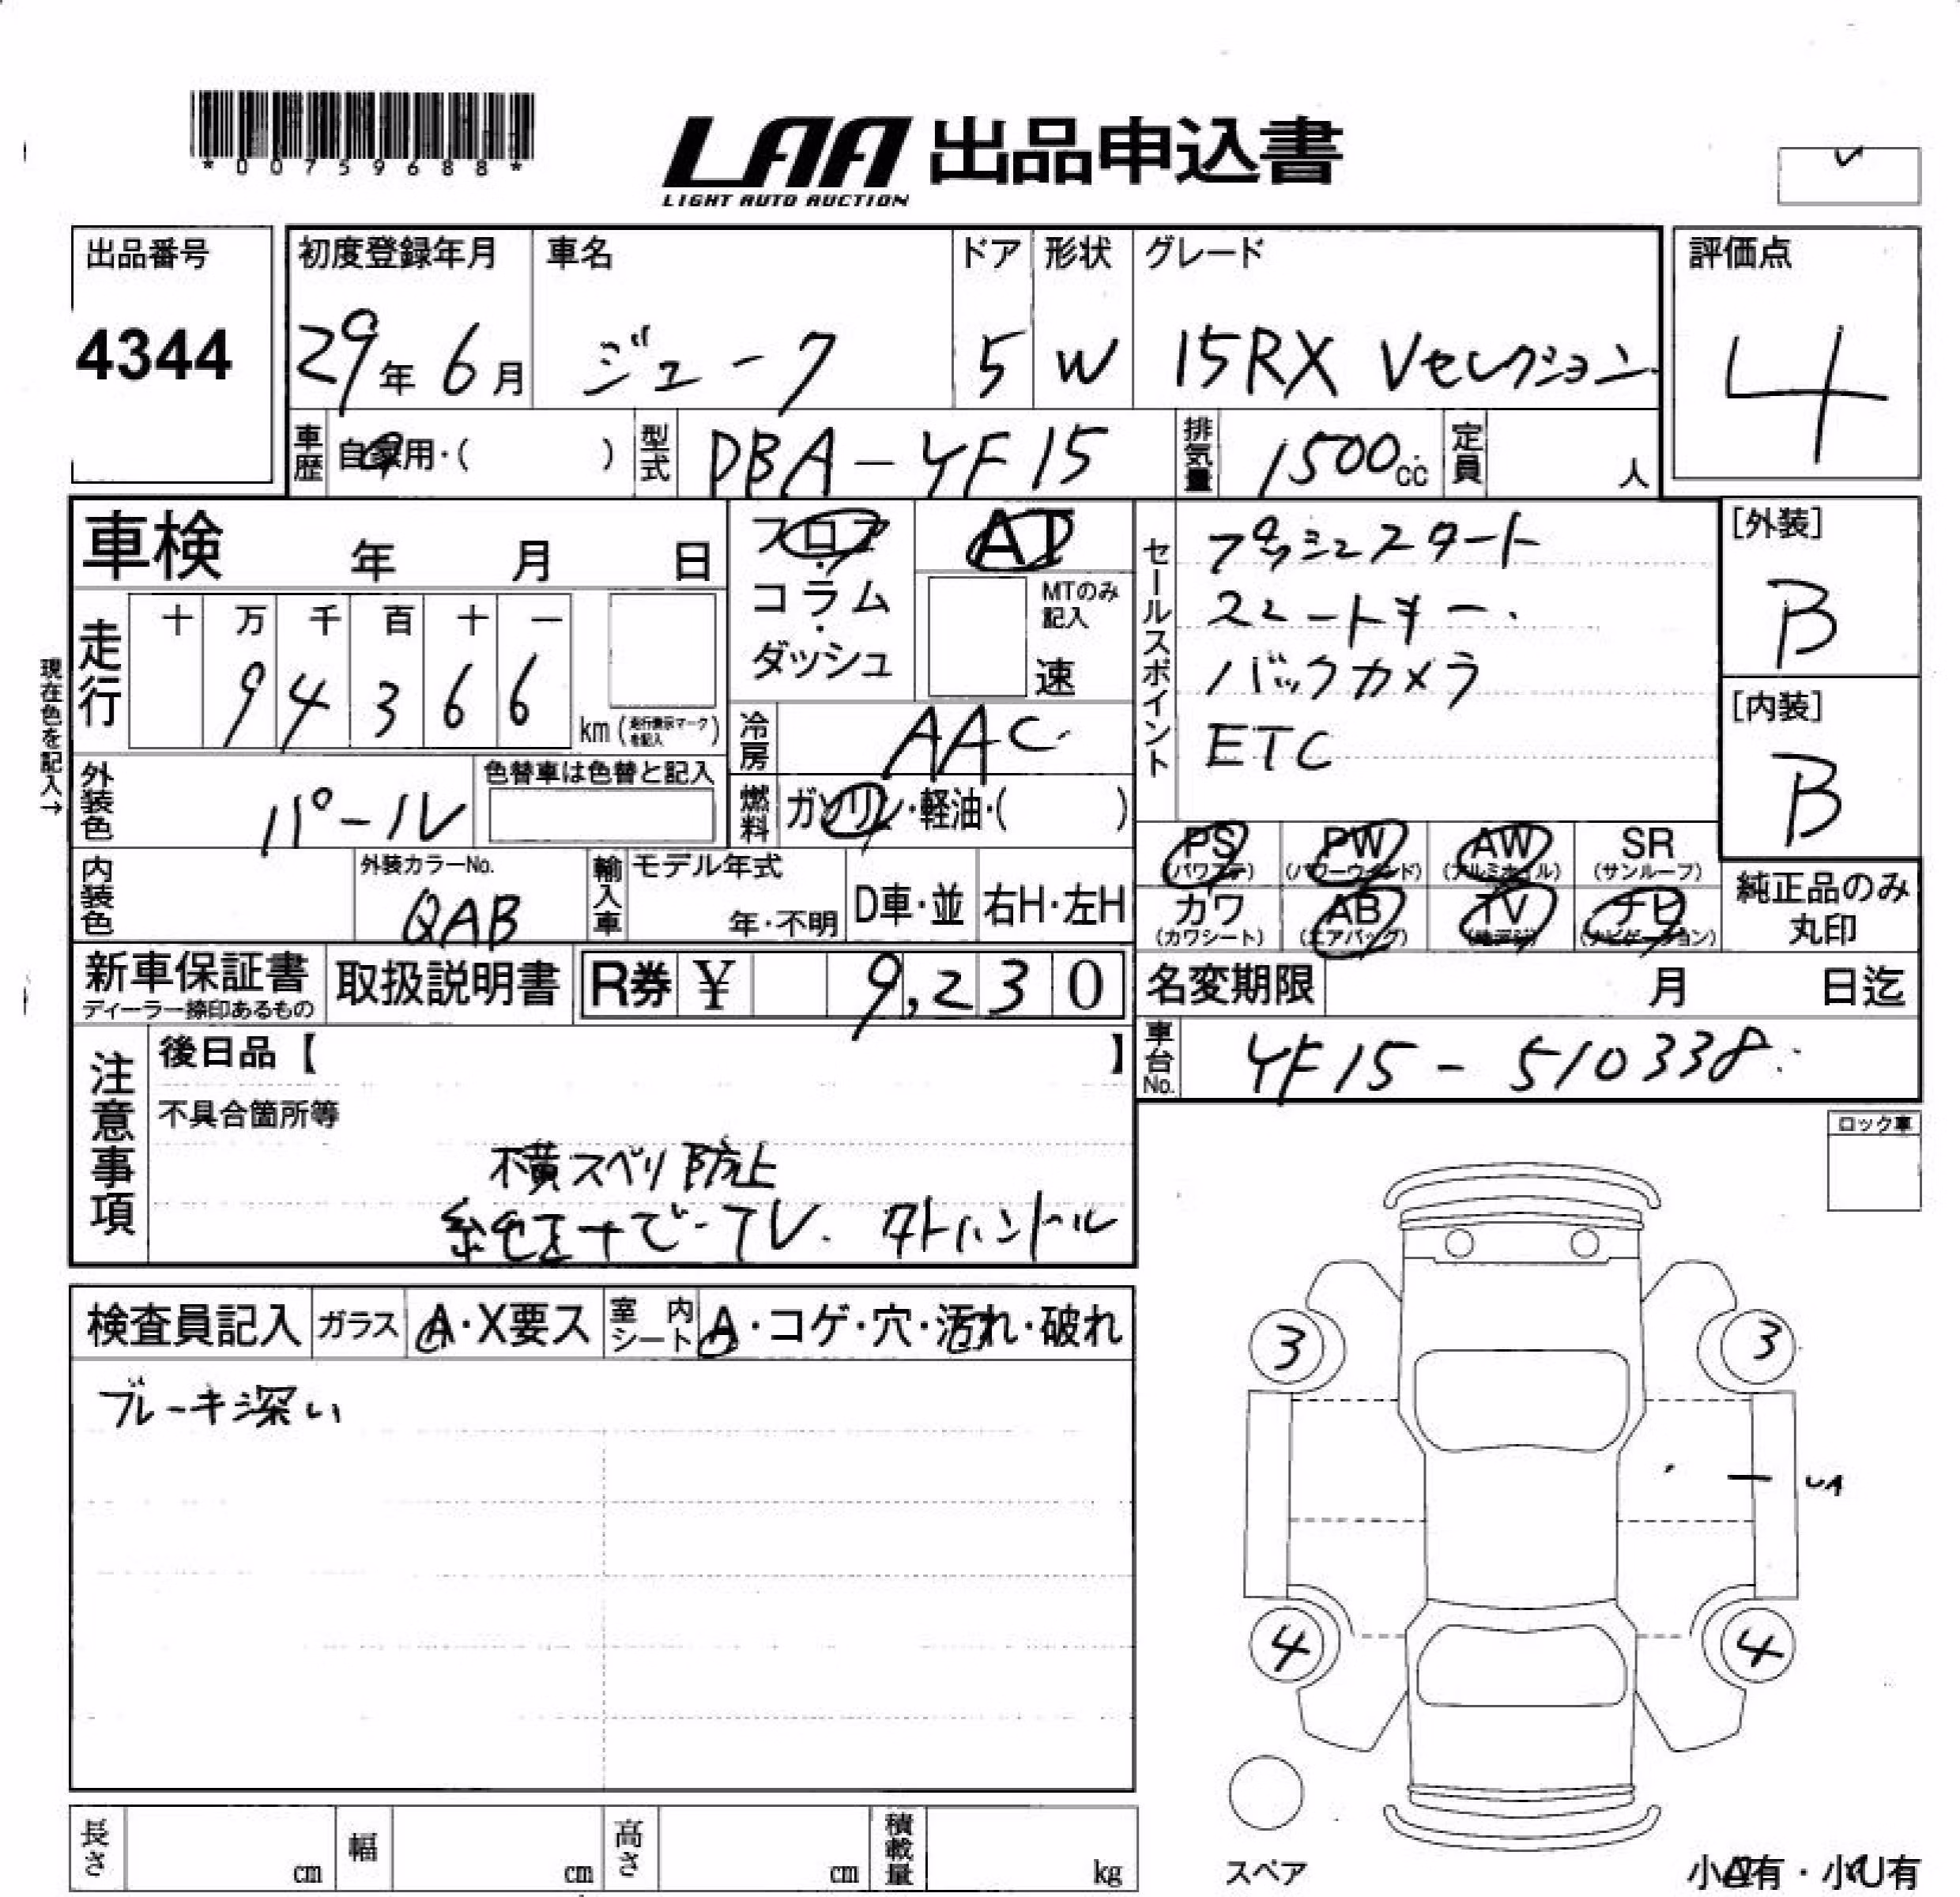 *00759688*
LAA 出品申込書
LIGHT AUTO AUCTION
出品番号 初度登録年月 車名 ドア 形状 グレード 評価点
4344 29年6月 ジューク 5 W 15RX Vセレクション 4
車歴 自家用・( ) 型式 DBA-YF15 排気量 1500cc 定員 人
車検 年 月 日
フロア・コラム・ダッシュ
AT
MTのみ記入
速
走行 十 万 千 百 十 一
9 4 3 6 6 km (走行表示マークを記入)
現在色を記入→
外装色 パール
色替車は色替と記入
冷房 AAC
燃料 ガソリン・軽油・( )
セールスポイント
プッシュスタート
スマートキー
バックカメラ
ETC
[外装]
B
[内装]
B
PS PW AW SR
(パワステ) (パワーウィンド) (アルミホイル) (サンルーフ)
カワ AB TV ナビ
(カワシート) (エアバッグ) (地デジ) (ナビゲーション)
純正品のみ丸印
内装色 外装カラーNo. QAB
輸入車 モデル年式 年・不明 D車・並 右H・左H
新車保証書 取扱説明書 R券 ¥ 9,230
ディーラー捺印あるもの
名変期限 月 日迄
車台No. YF15-510338
注意事項
後日品【 】
不具合箇所等
横スベリ防止
純正ナビ・TV. 革ハンドル
ロック車
検査員記入 ガラス A・X要ス 室内シート A・コゲ・穴・汚れ・破れ
ブレーキ深い
3 3
UA
4 4
スペア
小A有・小U有
長さ cm 幅 cm 高さ cm 積載量 kg